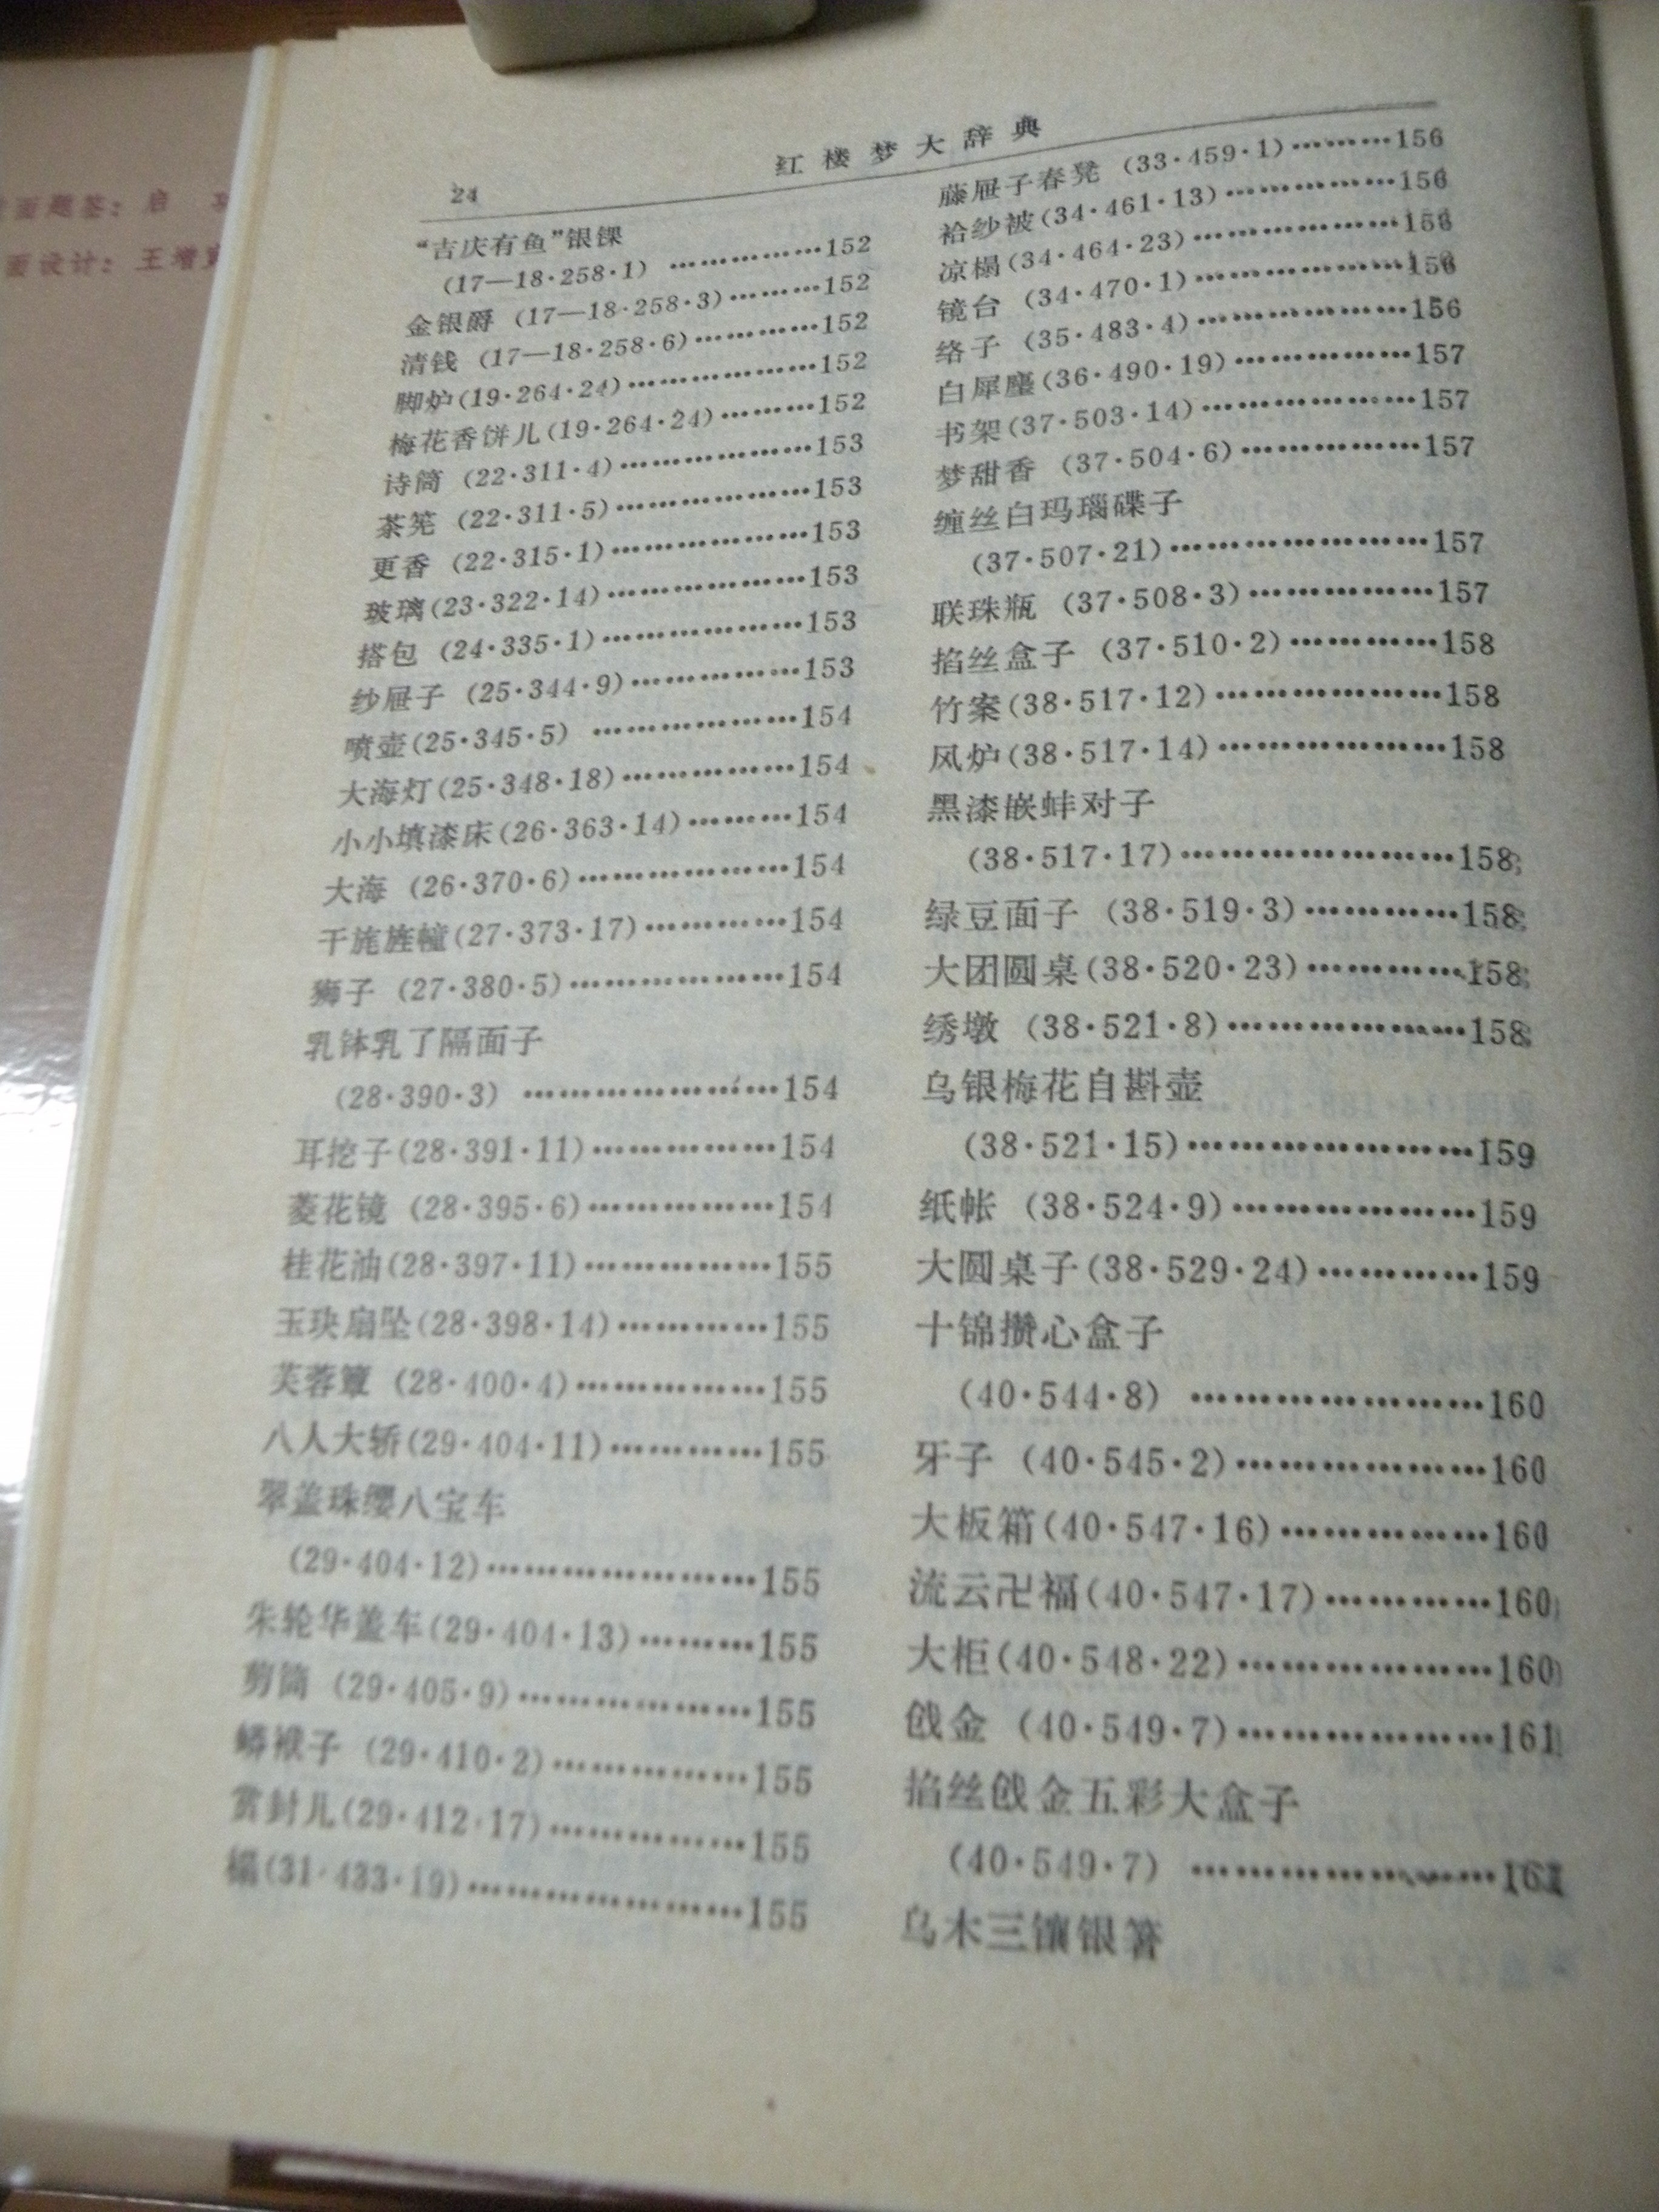 24
红楼梦大辞典
“吉庆有鱼”银锞
(17—18·258·1) ……………152
金银爵 (17—18·258·3)………152
清钱 (17—18·258·6)……………152
脚炉(19·264·24)…………………152
梅花香饼儿(19·264·24)………152
诗筒 (22·311·4)…………………153
茶筅 (22·311·5)…………………153
更香 (22·315·1)…………………153
玻璃(23·322·14)…………………153
搭包 (24·335·1)…………………153
纱屉子 (25·344·9)………………153
喷壶(25·345·5) …………………154
大海灯(25·348·18)………………154
小小填漆床(26·363·14)………154
大海 (26·370·6)…………………154
干旄旌幢(27·373·17)……………154
狮子 (27·380·5)…………………154
乳钵乳了隔面子
(28·390·3) ………………………154
耳挖子(28·391·11)………………154
菱花镜 (28·395·6)………………154
桂花油(28·397·11)………………155
玉玦扇坠(28·398·14)……………155
芙蓉簟 (28·400·4)………………155
八人大轿(29·404·11)……………155
翠盖珠缨八宝车
(29·404·12)………………………155
朱轮华盖车(29·404·13)………155
剪筒 (29·405·9)…………………155
蟒袱子 (29·410·2)………………155
赏封儿(29·412·17)………………155
榻(31·433·19)……………………155
藤屉子春凳 (33·459·1)………156
袷纱被(34·461·13)………………156
凉榻(34·464·23)…………………156
镜台 (34·470·1)…………………156
络子 (35·483·4)…………………156
白犀麈(36·490·19)………………157
书架(37·503·14)…………………157
梦甜香 (37·504·6)………………157
缠丝白玛瑙碟子
(37·507·21)………………………157
联珠瓶 (37·508·3)………………157
掐丝盒子 (37·510·2)……………158
竹案(38·517·12)…………………158
风炉(38·517·14)…………………158
黑漆嵌蚌对子
(38·517·17)………………………158
绿豆面子 (38·519·3)……………158
大团圆桌(38·520·23)……………158
绣墩 (38·521·8)…………………158
乌银梅花自斟壶
(38·521·15)………………………159
纸帐 (38·524·9)…………………159
大圆桌子(38·529·24)……………159
十锦攒心盒子
(40·544·8) ………………………160
牙子 (40·545·2)…………………160
大板箱(40·547·16)………………160
流云卍福(40·547·17)……………160
大柜(40·548·22)…………………160
戗金 (40·549·7)…………………161
掐丝戗金五彩大盒子
(40·549·7) ………………………161
乌木三镶银箸
面题签：启
面设计：王增